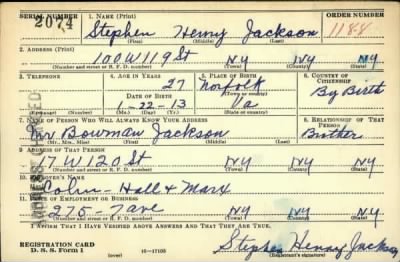 SERIAL NUMBER 1. NAME (Print) ORDER NUMBER
2074 Stephen Henry Jackson 1188
(First) (Middle) (Last)
2. ADDRESS (Print)
100 W 119 St NY NY NY
(Number and street or R. F. D. number) (Town) (County) (State)
3. TELEPHONE 4. AGE IN YEARS 5. PLACE OF BIRTH 6. COUNTRY OF CITIZENSHIP
27 Norfolk
DATE OF BIRTH (Town or county)
1-22-13 Va By Birth
(Exchange) (Number) (Mo.) (Day) (Yr.) (State or country)
7. NAME OF PERSON WHO WILL ALWAYS KNOW YOUR ADDRESS 8. RELATIONSHIP OF THAT PERSON
Mr Bowman Jackson Brother
(Mr., Mrs., Miss) (First) (Middle) (Last)
9. ADDRESS OF THAT PERSON
17 W 120 St NY NY NY
(Number and street or R. F. D. number) (Town) (County) (State)
10. EMPLOYER'S NAME
Hall & Marx
11. PLACE OF EMPLOYMENT OR BUSINESS
275-7 ave NY NY NY
(Number and street or R. F. D. number) (Town) (County) (State)
I AFFIRM THAT I HAVE VERIFIED ABOVE ANSWERS AND THAT THEY ARE TRUE.
REGISTRATION CARD
D. S. S. Form 1 (over) 16—17105 Stephen Henry Jackson
(Registrant's signature)